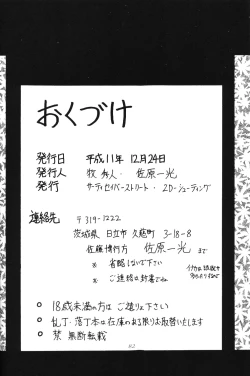 おくづけ
発行日 平成11年 12月24日
発行人 牧 秀人・佐原一光
発行 サーティセイバーストリート・2D-シューティング
連絡先 〒319-1222
茨城県 日立市 久慈町 3-18-8
佐藤博行方 佐原一光 まで
※ 省略しないで下さい
※ ご連絡は封書でね
○ 18歳未満の方は ご遠りょ下さい
○ 乱丁・落丁本は在庫のある限りお取替いたします
○ 禁 無断転載
82